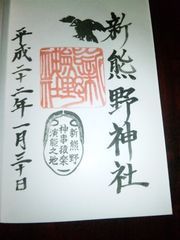 新熊野神社
新熊野
神事猿楽
演能之地
平成二十二年一月三十日